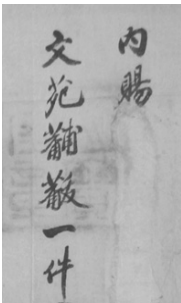 内賜
文苑黼黻一件